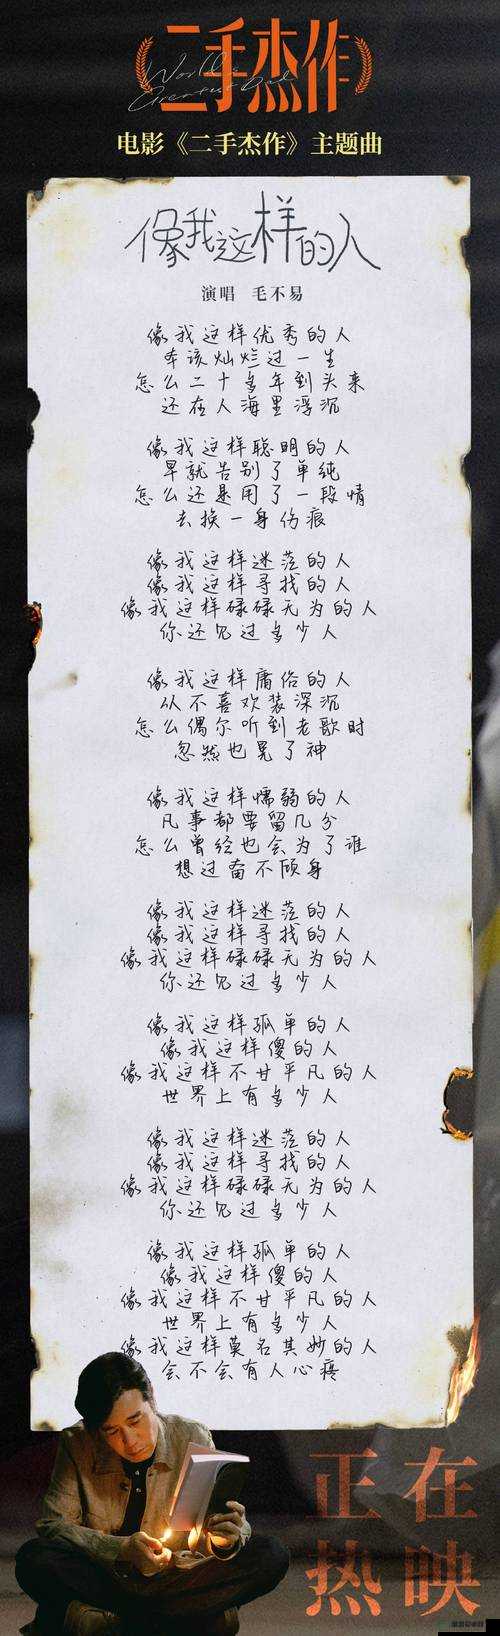 二手杰作
World's
Greatest Dad
电影《二手杰作》主题曲
像我这样的人
演唱 毛不易
像我这样优秀的人
本该灿烂过一生
怎么二十多年到头来
还在人海里浮沉
像我这样聪明的人
早就告别了单纯
怎么还是用了一段情
去换一身伤痕
像我这样迷茫的人
像我这样寻找的人
像我这样碌碌无为的人
你还见过多少人
像我这样庸俗的人
从不喜欢装深沉
怎么偶尔听到老歌时
忽然也晃了神
像我这样懦弱的人
凡事都要留几分
怎么曾经也会为了谁
想过奋不顾身
像我这样迷茫的人
像我这样寻找的人
像我这样碌碌无为的人
你还见过多少人
像我这样孤单的人
像我这样傻的人
像我这样不甘平凡的人
世界上有多少人
像我这样迷茫的人
像我这样寻找的人
像我这样碌碌无为的人
你还见过多少人
像我这样孤单的人
像我这样傻的人
像我这样不甘平凡的人
世界上有多少人
像我这样莫名其妙的人
会不会有人心疼
正在
热映